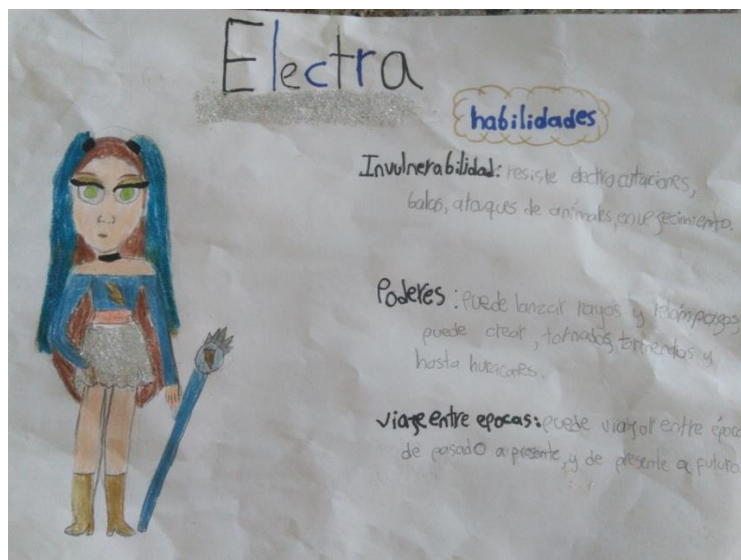 Electra
habilidades
Invulnerabilidad: resiste electrocutaciones,
balas, ataques de animales, envegecimiento.
Poderes: puede lanzar rayos y relámpagos,
puede crear, tornados, tormendas y
hasta huracanes.
viaje entre epocas: puede viajar entre época
de pasado a presente, y de presente a futuro